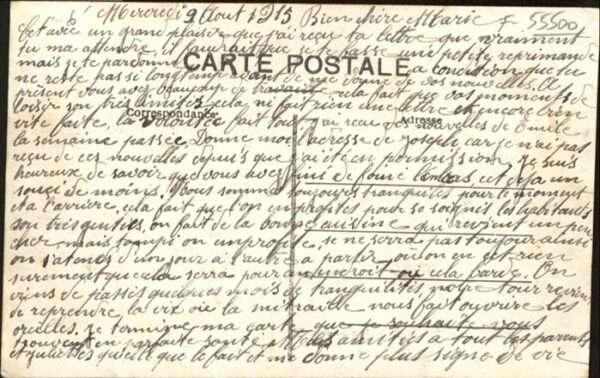 Mercredi 9 Aout 1915 Bien chère Marie F 55500
Cet avec un grand plaisir que j'ai reçu ta lettre que vraiment
tu ma attendre, il faudrait que je te passe une petite reprimande
mais je te pardonne CARTE POSTALE a condition que tu
ne reste pas si longtemps avant de me donne de vos nouvelles. A
présent vous aves beaucoup de travail cela fait que vos moments de
loisir son tres limites cela ni fait rien une lettre et encore bien
vite faite, la volontée fait tout j'ai recu des nouvelles de Emile
Correspondance Adresse
la semaine passée Donne moi l'adresse de Joseph car je n'ai pas
reçu de ces nouvelles depuis que j'ai été en permission, Je suis
heureux de savoir que vous aves fini de foine et déja un
souci de moins. Nous somme toujours tranquilles pour le moment
et a l'arrière, cela fait que l'on en profites pour se soignes les habitants
son tres genties, on fait de la bonne cuisine qui revient un peu
cher mais tempi on en profite, se ne serra pas toujour ainsi
on s'atend d'un jour a l'autre a partir, ou l'on en est rien
surement que cela serra pour un endroit ou cela barde. On
viens de passés quelques mois de tranquilités, notre tour revient
de reprendre la vix ou la mitraille nous fait ouvrire les
oreilles. Je termine ma carte que je souhaite vous
trouvent en parfaite santé. Mes amitiés a tout les parents
et Juliettes qu'elle que le fait et me donne plus signe de vie